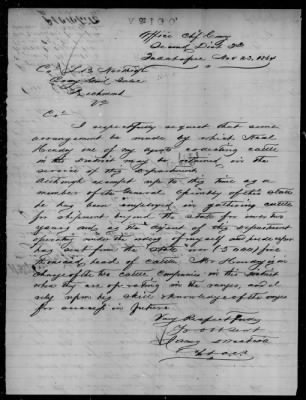 Office Chf Comy
Second Dist Fla
Tallahassee Nov 23, 1864
Col
Comy Genl Subs
Richmond
Va
Col
I respectfully request that some
arrangement be made by which Neal
Hendry one of my agents collecting cattle
in this District may be retained in the
service of this Department.
Although exempt up to this time as a
member of the General Assembly of this State
he has been employed in gathering cattle
for shipment beyond the State for over two
years and as the Agent of this department
operating under the orders of myself and predecessor
has sent from the State over
head of cattle. Mr Hendry is in
charge of the two Cattle Companies in this District
when they are operating in the ranges, and I
rely upon his skill & knowledge of the ranges
for success in future.
Very Respectfully